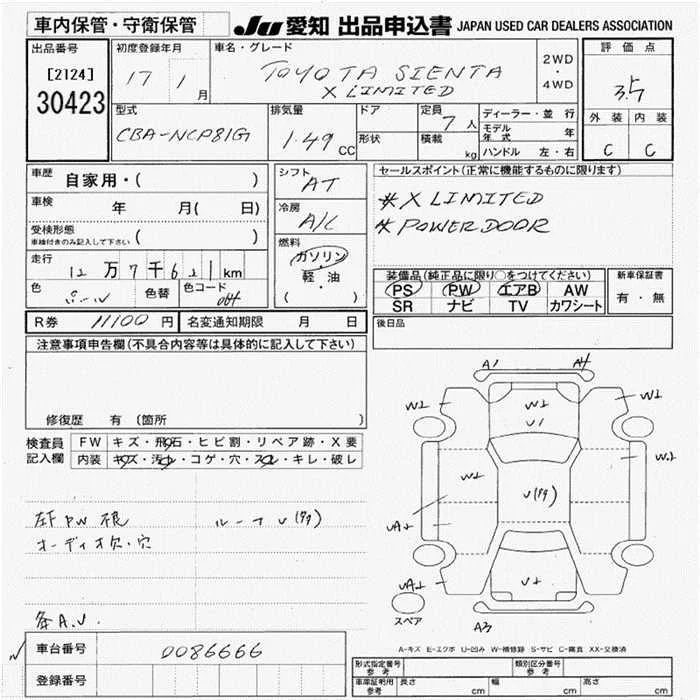 車内保管・守衛保管 JU 愛知 出品申込書 JAPAN USED CAR DEALERS ASSOCIATION
出品番号 初度登録年月 車名・グレード 評価点
[2124] 17 1月 TOYOTA SIENTA 2WD・4WD 3.5
30423 X LIMITED
型式 排気量 ドア 定員 7人 ディーラー・並行 外装 内装
CBA-NCP81G 1.49 CC 形状 積載 kg モデル年式 年 C C
ハンドル 左・右
車歴 自家用・( ) シフト AT セールスポイント(正常に機能するものに限ります)
車検 年 月( 日) 冷房 A/C #X LIMITED
受検形態 ( ) #POWER DOOR
車検付きのみ記入して下さい
走行 12万7千621km 燃料 ガソリン・軽・油 ( )
色 色替 色コード 装備品(純正品に限り○をつけてください) 新車保証書
PS PW エアB AW 有・無
SR ナビ TV カワシート
R券 11100円 名変通知期限 月 日 後日品
注意事項申告欄(不具合内容等は具体的に記入して下さい)
修復歴 有 (箇所 )
検査員記入欄 FW キズ・飛石・ヒビ割・リペア跡・X要
内装 キズ・汚れ・コゲ・穴・スレ・キレ・破レ
A1 A4
W1 W1 W1
U1
W2 W1
UA1
UA1 U1
スペア
A3
左F PW 不良 ルーフ U
オーディオ欠・穴
A-キズ E-エクボ U-凹み W-補修跡 S-サビ C-腐食 XX-交換済
車台番号 0086666
登録番号
形式指定番号 参考 類別区分番号 参考
車庫証明用 参考 長さ cm 幅 cm 高さ cm